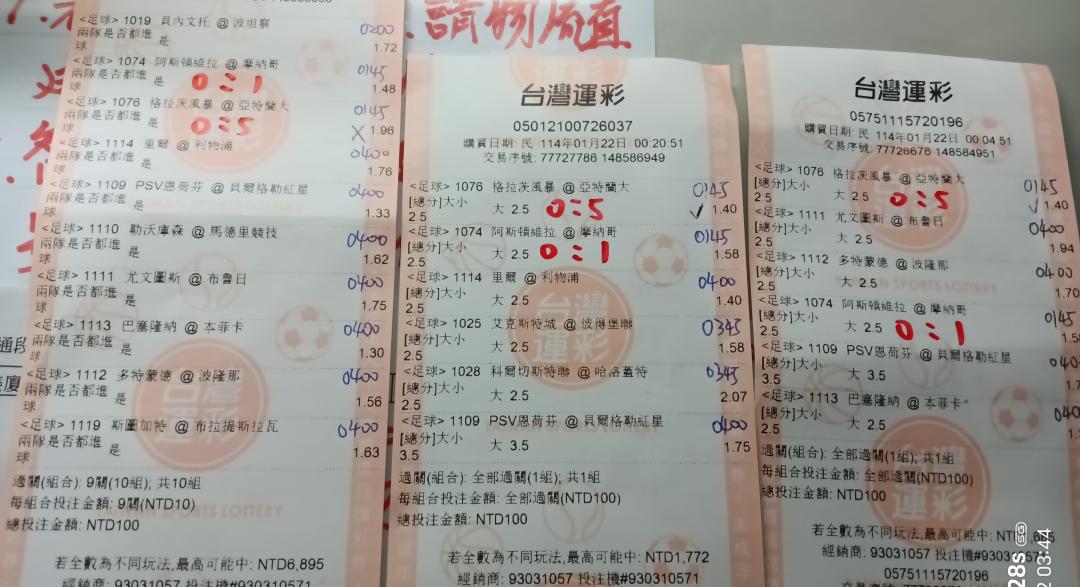 請勿成直
<足球> 1019 貝內文托 @ 波坦察 0200
兩隊是否都進球 是 1.72
<足球> 1074 阿斯頓維拉 @ 摩納哥 0145
兩隊是否都進球 是 0:1 1.48
<足球> 1076 格拉茨風暴 @ 亞特蘭大 0145
兩隊是否都進球 是 0:5 X 1.96
<足球> 1114 里爾 @ 利物浦 0400
兩隊是否都進球 是 1.76
<足球> 1109 PSV恩荷芬 @ 貝爾格勒紅星 0400
兩隊是否都進球 是 1.33
<足球> 1110 勒沃庫森 @ 馬德里競技 0400
兩隊是否都進球 是 1.62
<足球> 1111 尤文圖斯 @ 布魯日 0400
兩隊是否都進球 是 1.75
<足球> 1113 巴塞隆納 @ 本菲卡 0400
兩隊是否都進球 是 1.30
<足球> 1112 多特蒙德 @ 波隆那 0400
兩隊是否都進球 是 1.56
<足球> 1119 斯圖加特 @ 布拉提斯拉瓦 0400
兩隊是否都進球 是 1.63
過關(組合): 9關(10組); 共10組
每組合投注金額: 9關(NTD10)
總投注金額: NTD100
若全數為不同玩法,最高可能中: NTD6,895
經銷商: 93031057 投注機#930310571
台灣運彩
05012100726037
購買日期: 民 114年01月22日 00:20:51
交易序號: 77727786 148586949
<足球> 1076 格拉茨風暴 @ 亞特蘭大 0145
[總分]大小 2.5 大 2.5 0:5 ✓ 1.40
<足球> 1074 阿斯頓維拉 @ 摩納哥 0145
[總分]大小 2.5 大 2.5 0:1 1.58
<足球> 1114 里爾 @ 利物浦 0400
[總分]大小 2.5 大 2.5 1.40
<足球> 1025 艾克斯特城 @ 彼得堡聯 0345
[總分]大小 2.5 大 2.5 1.58
<足球> 1028 科爾切斯特聯 @ 哈洛蓋特 0345
[總分]大小 2.5 大 2.5 2.07
<足球> 1109 PSV恩荷芬 @ 貝爾格勒紅星 0400
[總分]大小 3.5 大 3.5 1.75
過關(組合): 全部過關(1組); 共1組
每組合投注金額: 全部過關(NTD100)
總投注金額: NTD100
若全數為不同玩法,最高可能中: NTD1,772
經銷商: 93031057 投注機#930310571
台灣運彩
05751115720196
購買日期: 民 114年01月22日 00:04:51
交易序號: 77726678 148584951
<足球> 1076 格拉茨風暴 @ 亞特蘭大 0145
[總分]大小 2.5 大 2.5 0:5 ✓ 1.40
<足球> 1111 尤文圖斯 @ 布魯日 0400
[總分]大小 2.5 大 2.5 1.94
<足球> 1112 多特蒙德 @ 波隆那 0400
[總分]大小 2.5 大 2.5 1.70
<足球> 1074 阿斯頓維拉 @ 摩納哥 0145
[總分]大小 2.5 大 2.5 0:1
<足球> 1109 PSV恩荷芬 @ 貝爾格勒紅星
[總分]大小 3.5 大 3.5
<足球> 1113 巴塞隆納 @ 本菲卡
[總分]大小 2.5 大 2.5
過關(組合): 全部過關(1組); 共1組
每組合投注金額: 全部過關(NTD100)
總投注金額: NTD100
若全數為不同玩法,最高可能中:
經銷商: 93031057 投注機#930310
05751115720196